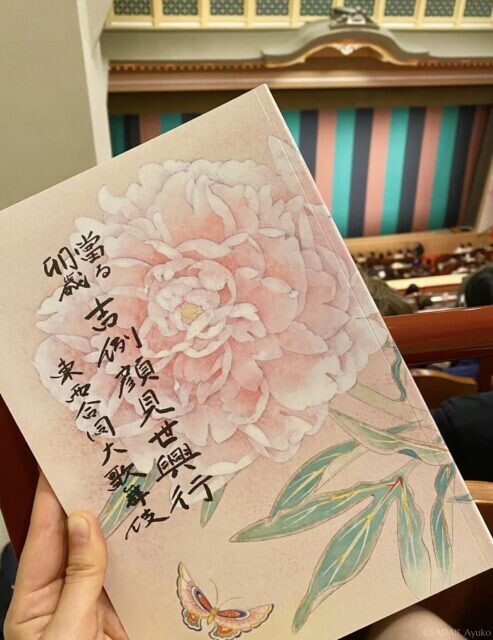 當る卯歳
吉例顔見世興行
東西合同大歌舞伎